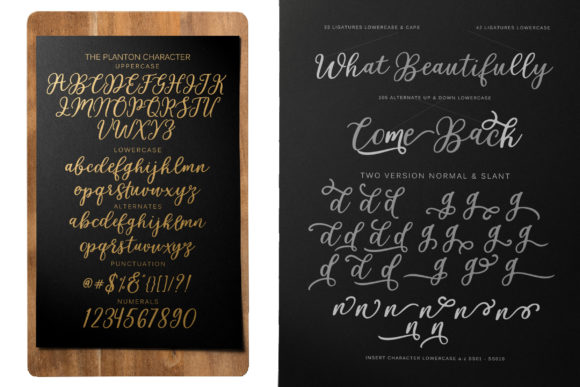 THE PLANTON CHARACTER
UPPERCASE
ABCDEFGHIJK
LMNOPQRSTU
VWXYZ
LOWERCASE
abcdefghijklmn
opqrstuvwxyz
ALTERNATES
abcdefghijklmn
opqrstuvwxyz
PUNCTUATION
@#$%&*()[]/!?
NUMERALS
1234567890
22 LIGATURES LOWERCASE & CAPS
47 LIGATURES LOWERCASE
What Beautifully
205 ALTERNATE UP & DOWN LOWERCASE
Come Back
TWO VERSION NORMAL & SLANT
d d d g g g
d d d d g g g g
d d d d g g g
n n n n n n
n n
INSERT CHARACTER LOWERCASE a-z SS01 - SS019